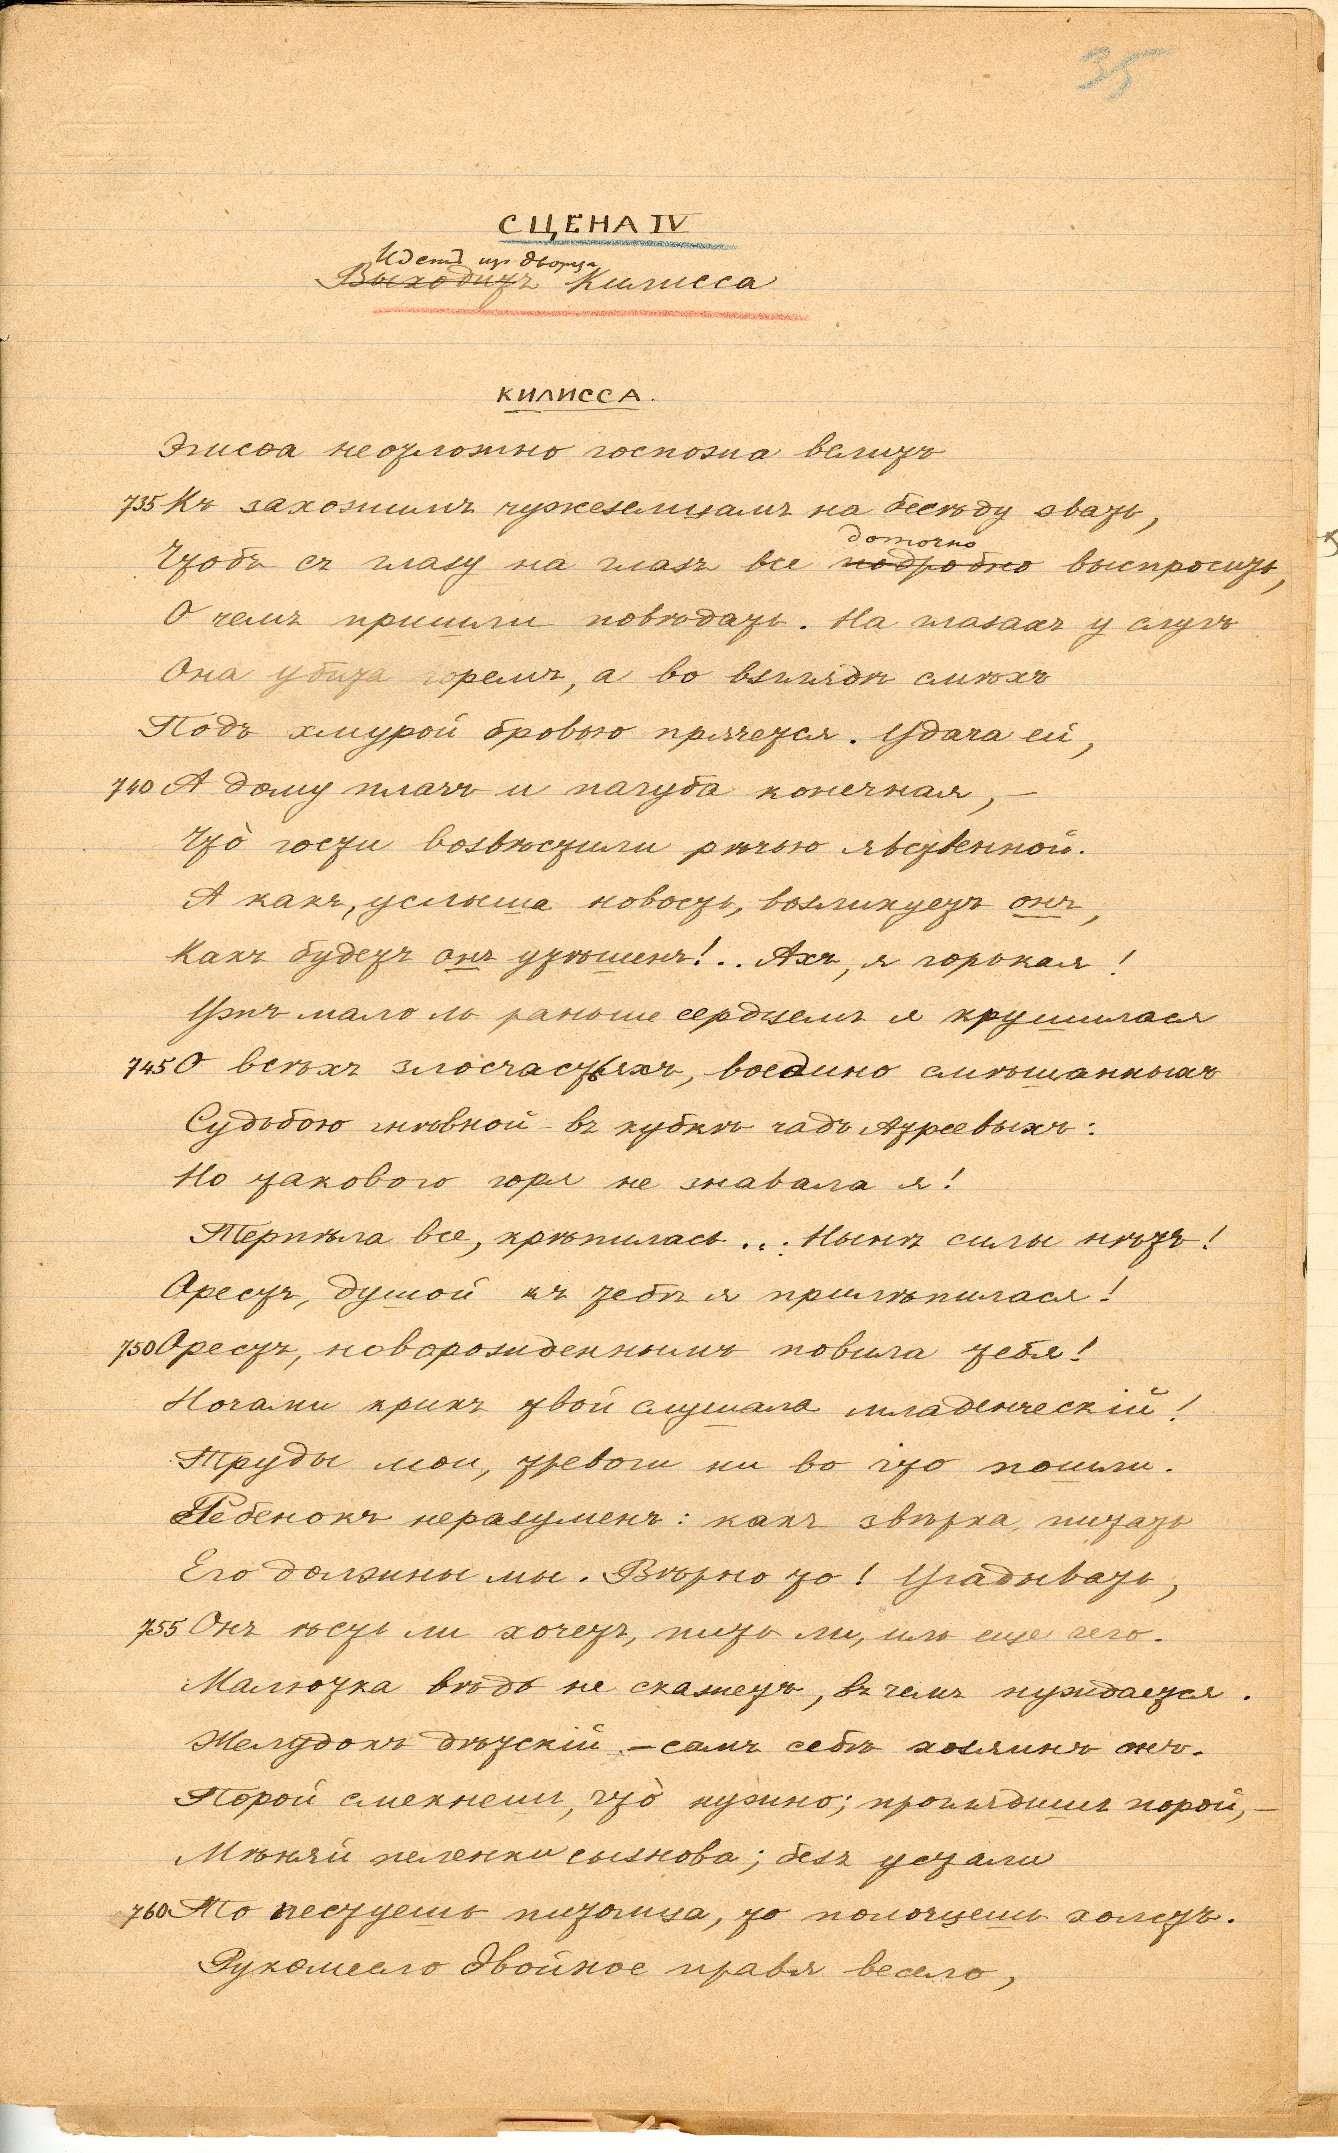 35
СЦЕНА IV
Идетъ изъ дворца
Выходитъ Килисса
КИЛИССА.
Эгисѳа неотложно госпожа велитъ
735 Къ захожимъ чужеземцамъ на бесѣду звать,
доточно
Чтобъ съ глазу на глазъ все подробно выспросить,
О чемъ пришли повѣдать. На глазахъ у слугъ
Она убита горемъ, а во взглядѣ смѣхъ
Подъ хмурой бровью прячется. Удача ей,
740 А дому плачъ и пагуба конечная, –
Что̀ гости возвѣстили рѣчью явственной.
А какъ, услыша новость, возликуетъ онъ,
Какъ будетъ онъ утѣшенъ!.. Ахъ, я горькая!
Ужъ мало ль раньше сердцемъ я крушилася
745 О всѣхъ злосчастьяхъ, воедино смѣшанныхъ
Судьбою гнѣвной въ кубкѣ чадъ Атреевыхъ:
Но такового горя не знавала я!
Терпѣла все, крѣпилась... Нынѣ силы нѣтъ!
Орестъ, душой къ тебѣ я прилѣпилася!
750 Орестъ, новорожденнымъ повила тебя!
Ночами крикъ твой слушала младенческій!
Труды мои, тревоги ни во что пошли.
Ребенокъ неразуменъ: какъ звѣрка, питать
Его должны мы. Вѣрно то! Угадывать,
755 Онъ ѣсть ли хочетъ, пить ли, иль еще чего.
Малютка вѣдь не скажетъ, въ чемъ нуждается.
Желудокъ дѣтскій – самъ себѣ хозяинъ онъ.
Порой смекнешь, что̀ нужно; проглядишь порой, –
Мѣняй пеленки сызнова; безъ устали
760 То пестуешь питомца, то полощешь холстъ.
Рукомесло двойное правя весело,